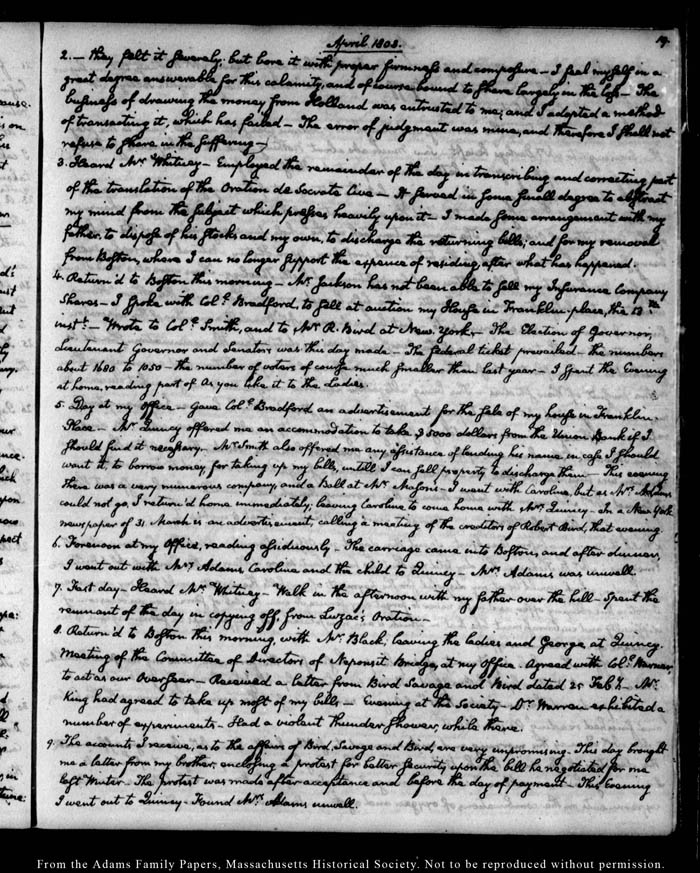 April 1803.
19.
2. — they felt it severely, but bore it with proper firmness and composure — I feel myself in a
great degree answerable for this calamity, and of course bound to share largely in the loss — The
business of drawing the money from Holland was entrusted to me; and I adopted a method
of transacting it, which has failed — The error of judgment was mine, and therefore I shall not
refuse to share in the suffering —
3. Heard Mr. Whitney — Employed the remainder of the day in transcribing and correcting part
of the translation of the Oration de Socrate Cive — It served in some small degree to abstract
my mind from the subject which presses heavily upon it — I made some arrangement with my
father, to dispose of his stocks and my own, to discharge the returning bills; and for my removal
from Boston, where I can no longer support the expence of residing, after what has happened.
4. Return'd to Boston this morning — Mr. Jackson has not been able to sell my Insurance Company
Shares — I spoke with Coll. Bradford, to sell at auction my House in Franklin-place, the 13th.
inst. — Wrote to Coll. Smith, and to Mr. R. Bird at New-York — The Election of Governor,
Lieutenant Governor and Senators was this day made — The federal ticket prevailed — the numbers
about 1680 to 1050 — the number of voters of course much smaller than last year — I spent the Evening
at home, reading part of As you like it to the Ladies.
5. Day at my Office — Gave Coll. Bradford an advertisement for the sale of my house in Franklin-
Place — Mr. Quincy offered me an accommodation to take $5000 dollars from the Union Bank if I
should find it necessary — Mr. Smith also offered me any assistance of lending his name in case I should
want it, to borrow money, for taking up my bills, untill I can sell property to discharge them — This evening
there was a very numerous company, and a Ball at Mr. Mason's — I went with Caroline, but as Mrs. Adams
could not go, I return'd home immediately; leaving Caroline to come home with Mrs. Quincy — In a New York
newspaper of 31 March is an advertisement, calling a meeting of the creditors of Robert Bird, that evening.
6. Forenoon at my Office, reading assiduously — The carriage came into Boston, and after dinner,
I went out with Mrs. Adams, Caroline and the child to Quincy — Mrs. Adams was unwell.
7. Fast day — Heard Mr. Whitney — Walk in the afternoon with my father over the hill — Spent the
remnant of the day in copying off, from Luzac's Oration —
8. Return'd to Boston this morning, with Mr. Black, leaving the ladies and George at Quincy.
Meeting of the Committee of Directors of Neponsit Bridge, at my Office. Agreed with Coll. Warner,
to act as our Overseer — Received a letter from Bird Savage and Bird dated 25 Feby. — Mr.
King had agreed to take up most of my bills — Evening at the Society — Dr. Warren exhibited a
number of experiments — Had a violent thunder shower, while there.
9. The accounts I receive, as to the affairs of Bird, Savage and Bird, are very unpromising — This day brought
me a letter from my brother, enclosing a protest for better security upon the bill he negotiated for me
last Winter — The protest was made after acceptance and before the day of payment — This Evening
I went out to Quincy — Found Mrs. Adams unwell.
From the Adams Family Papers, Massachusetts Historical Society. Not to be reproduced without permission.